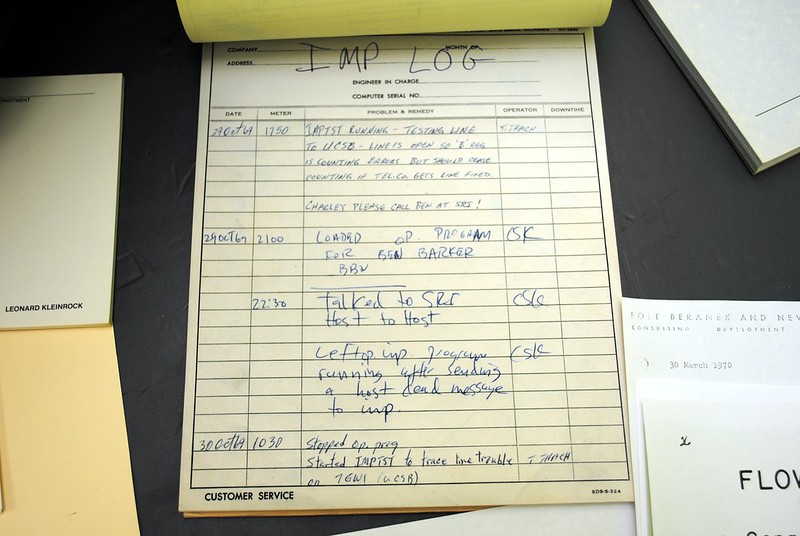 COMPANY
MONTH OF
IMP LOG
ADDRESS
ENGINEER IN CHARGE
COMPUTER SERIAL NO.
DATE METER PROBLEM & REMEDY OPERATOR DOWNTIME
29 Oct 69 1750 IMPTST RUNNING - TESTING LINE T. THACH
TO UCSB - LINE IS OPEN SO E REG
IS COUNTING ERRORS BUT SHOULD CEASE
COUNTING IF TEL.CO. GETS LINE FIXED.
CHARLEY PLEASE CALL BEN AT SRI!
29 OCT 69 2100 LOADED OP. PROGRAM CSK
FOR BEN BARKER
BBN
22:30 Talked to SRI CSK
Host to Host
Left op. imp program CSK
running after sending
a host dead message
to imp.
30 Oct 69 1030 Stopped op. prog
Started IMPTST to trace line trouble T. THACH
on (UCSB)
CUSTOMER SERVICE SDS-S-324
LEONARD KLEINROCK
BERANEK AND NEW
CONSULTING DEVELOPMENT
30 March 1970
FLOW